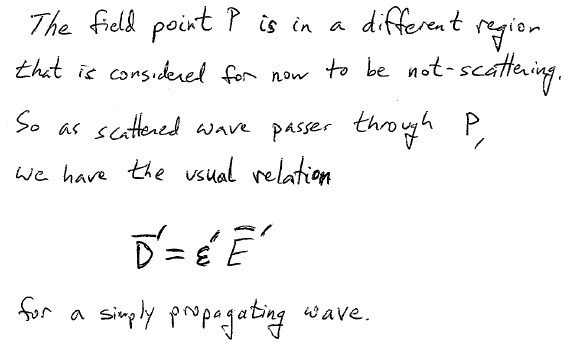 The field point P is in a different region
that is considered for now to be not-scattering.
So as scattered wave passes through P,
we have the usual relation
D̅′ = ε′ E̅′
for a simply propagating wave.